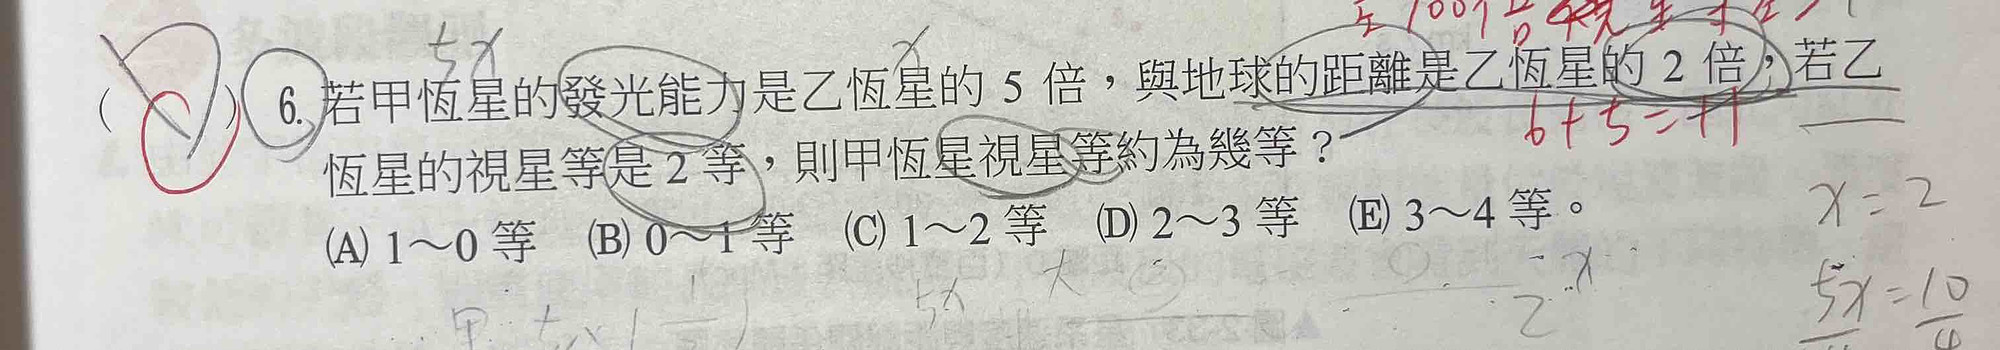 5x
x
( ) 6. 若甲恆星的發光能力是乙恆星的 5 倍，與地球的距離是乙恆星的 2 倍，若乙
6+5=11
恆星的視星等是 2 等，則甲恆星視星等約為幾等？
x=2
(A) 1～0 等 (B) 0～1 等 (C) 1～2 等 (D) 2～3 等 (E) 3～4 等。
5x=10